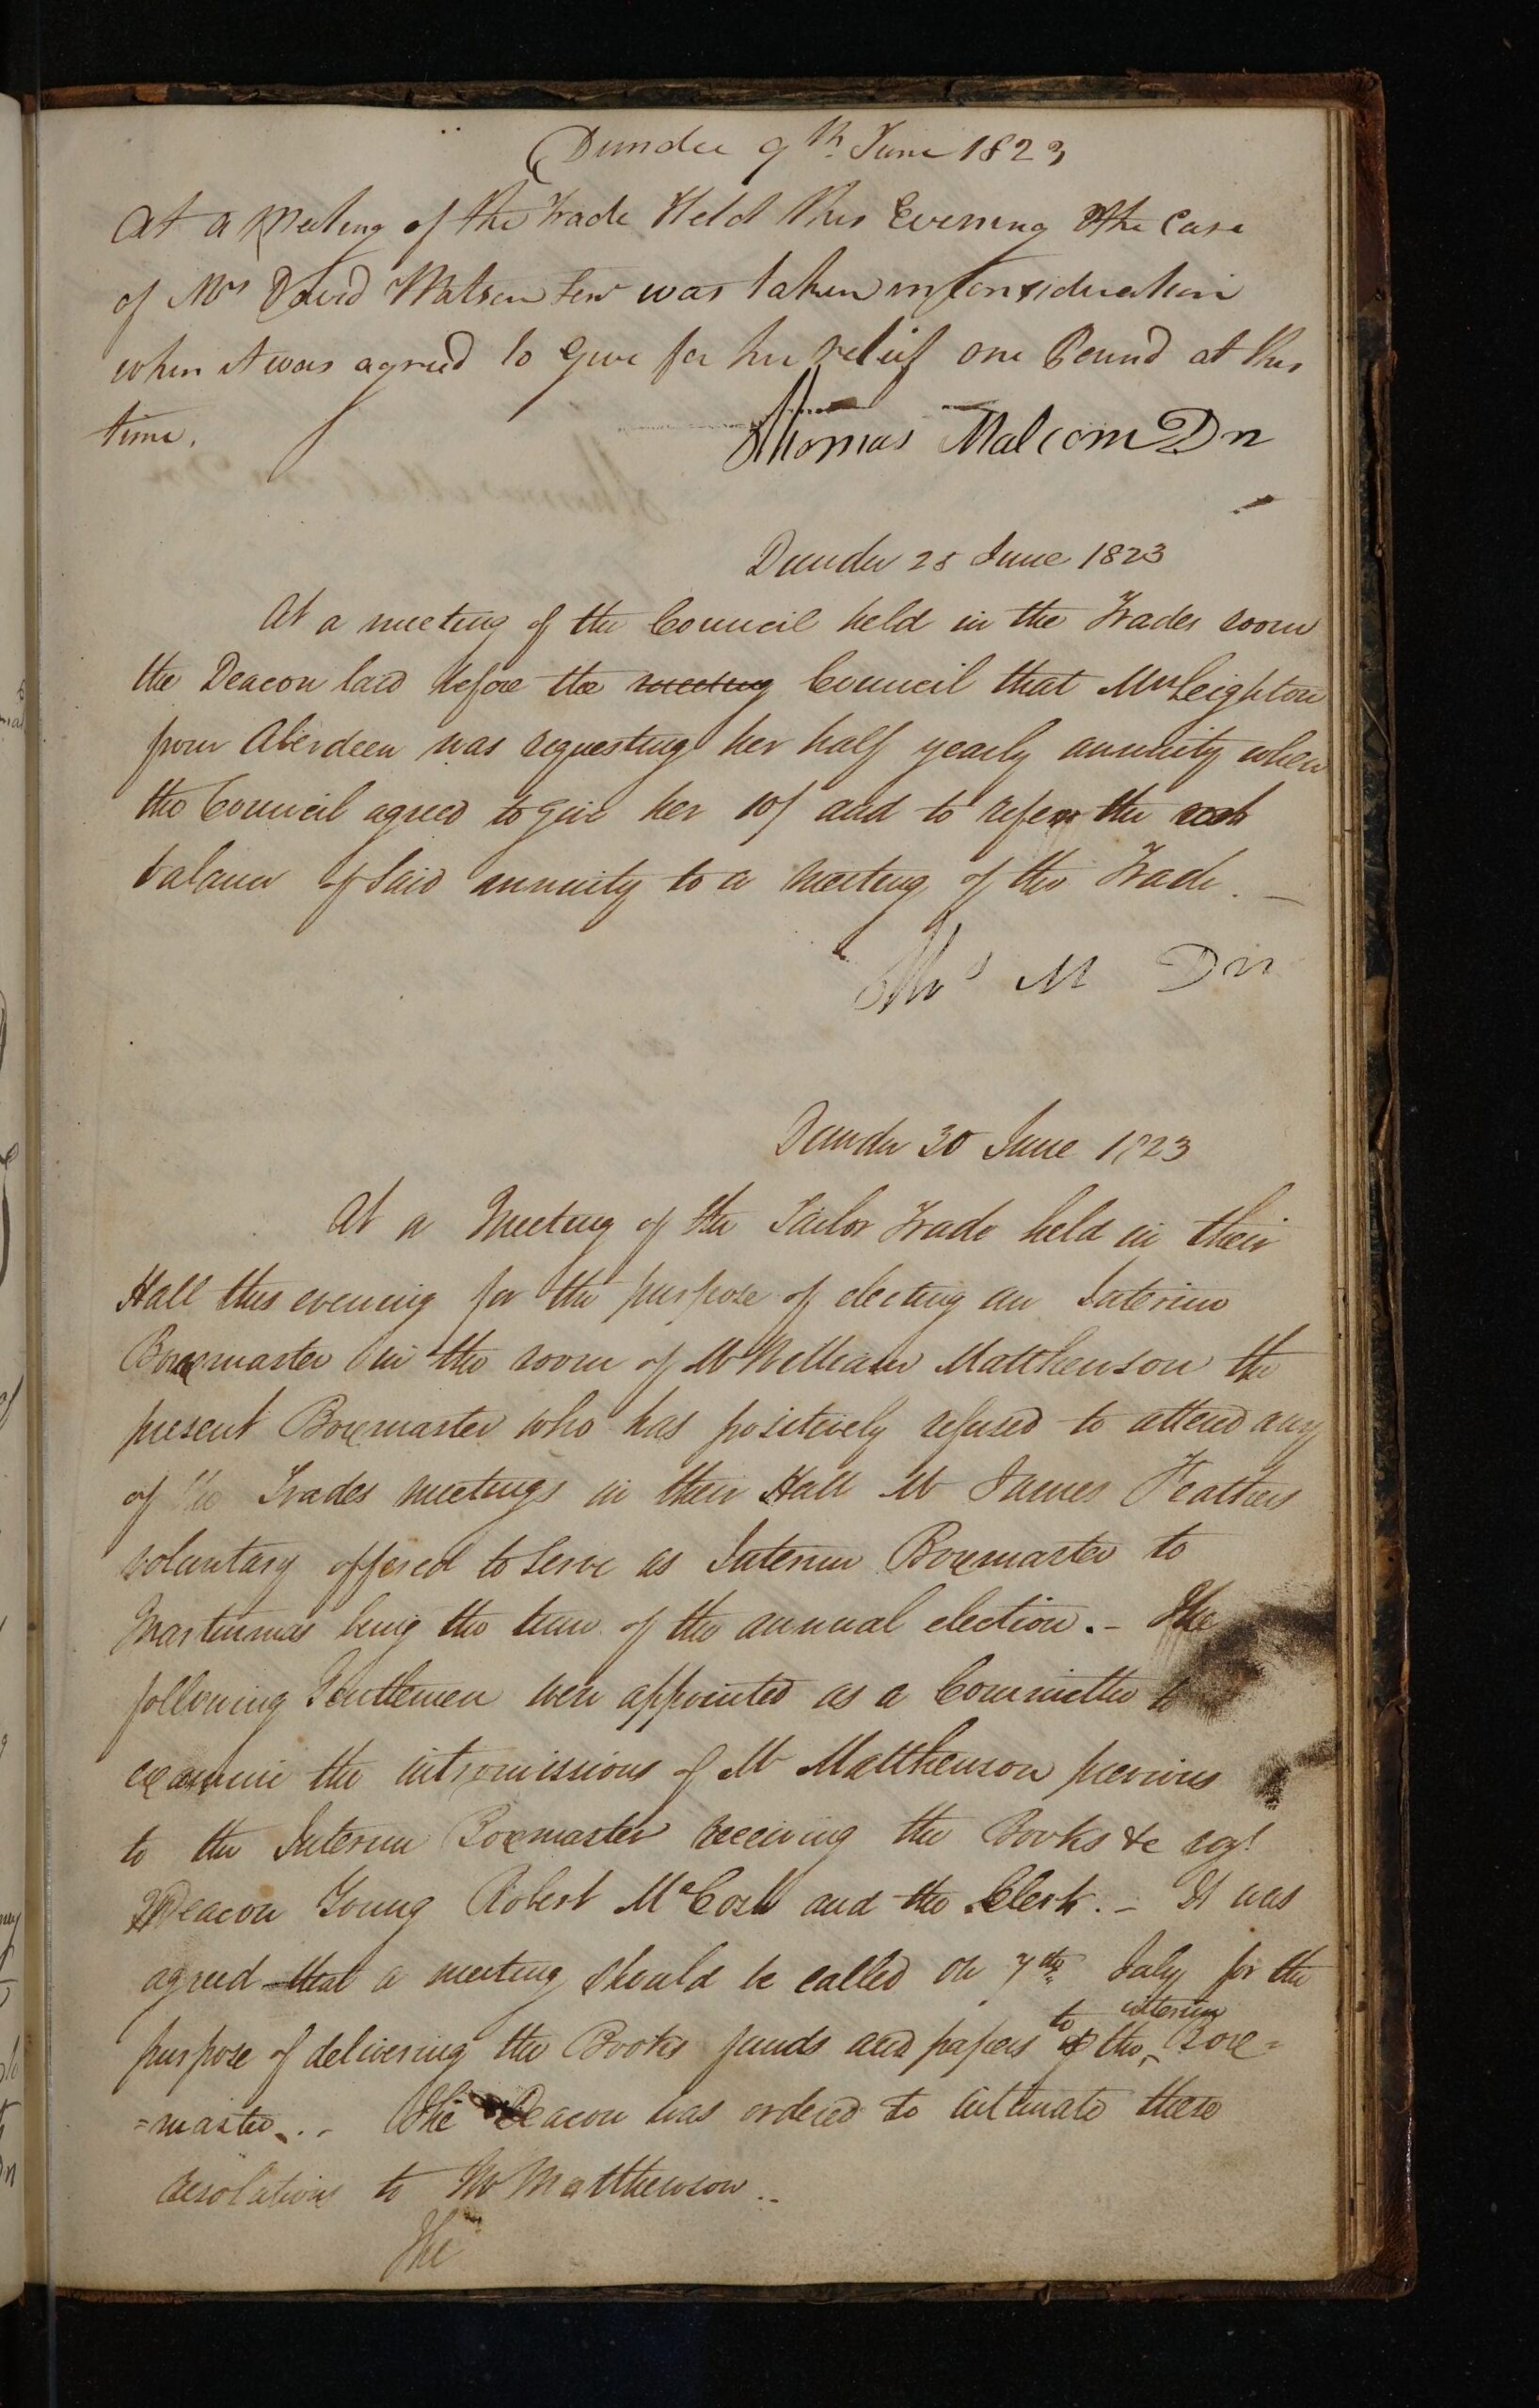 Dundee 9th June 1823
At a Meeting of the Trade Held this Evening the Case
of Mrs David Watson Senr was taken in Consideration
when it was agreed to Give for her relief one Pound at this
time.
Thomas Malcom Dn
Dundee 25 June 1823
At a meeting of the Council held in the Trades room
the Deacon laid before the meeting Council that Mrs Leighton
from Aberdeen was requesting her half yearly annuity when
the Council agreed to give her 10/ and to refer the
balance of said annuity to a meeting of the Trade. —
Thos M Dn
Dundee 30 June 1823
At a Meeting of the Tailor Trade held in their
Hall this evening for the purpose of electing an Interim
Boxmaster in the room of Mr William Matthewson the
present Boxmaster who has positively refused to attend any
of the Trades meetings in their Hall Mr James Feathers
voluntary offered to serve as Interim Boxmaster to
Martinmas being the time of the annual election. – The
following Gentlemen were appointed as a Committee to
examine the intromissions of Mr Matthewson previous
to the Interim Boxmaster receiving the Books &c
Deacon Young Robert McCosh and the Clerk. – It was
agreed that a meeting should be called on 7th July for the
purpose of delivering the Books funds and papers to the interim Box=
=master. . – The Deacon was ordered to intimate these
resolutions to Mr Matthewson ..
The